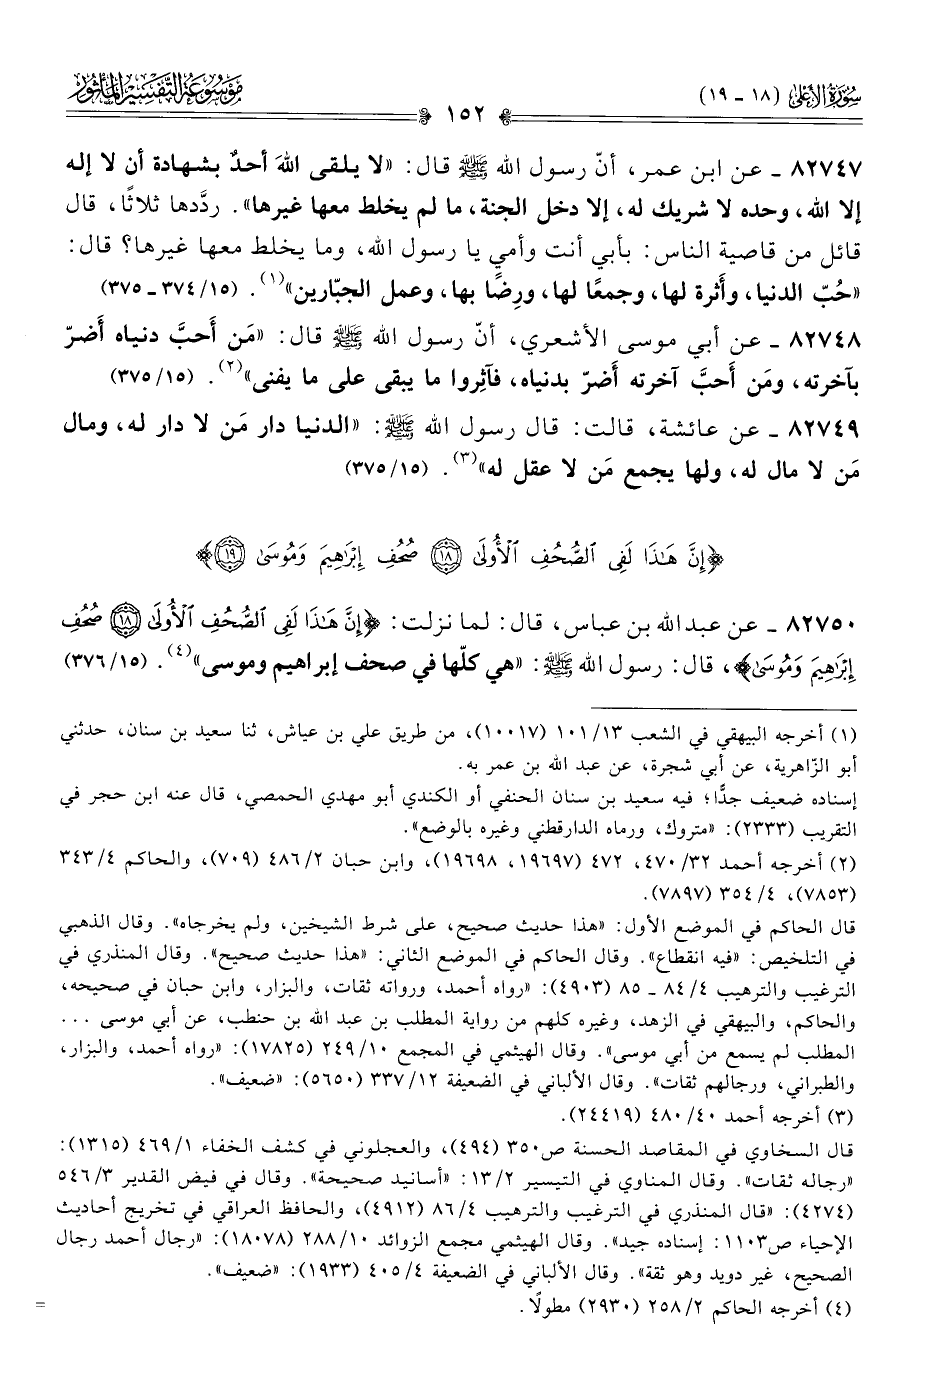 سُورَةُ الأَعْلَى (١٨ - ١٩)
١٥٢
مَوْسُوعَة التَّفْسِيْرِ المَأْثُور
٨٢٧٤٧ - عن ابن عمر، أنّ رسول الله ﷺ قال: «لا يلقى اللهَ أحدٌ بشهادة أن لا إله
إلا الله، وحده لا شريك له، إلا دخل الجنة، ما لم يخلط معها غيرها». ردَّدها ثلاثًا، قال
قائل من قاصية الناس: بأبي أنت وأمي يا رسول الله، وما يخلط معها غيرها؟ قال:
«حُبّ الدنيا، وأَثرة لها، وجمعًا لها، ورِضًا بها، وعمل الجبّارين»(١). (١٥/ ٣٧٤ - ٣٧٥)
٨٢٧٤٨ - عن أبي موسى الأشعري، أنّ رسول الله ﷺ قال: «مَن أَحبَّ دنياه أَضرّ
بآخرته، ومَن أَحبَّ آخرته أَضرّ بدنياه، فآثِروا ما يبقى على ما يفنى»(٢). (١٥/ ٣٧٥)
٨٢٧٤٩ - عن عائشة، قالت: قال رسول الله ﷺ: «الدنيا دار مَن لا دار له، ومال
مَن لا مال له، ولها يجمع مَن لا عقل له»(٣). (١٥/ ٣٧٥)
﴿إِنَّ هَٰذَا لَفِى ٱلصُّحُفِ ٱلْأُولَىٰ ١٨ صُحُفِ إِبْرَٰهِيمَ وَمُوسَىٰ ١٩﴾
٨٢٧٥٠ - عن عبدالله بن عباس، قال: لما نزلت: ﴿إِنَّ هَٰذَا لَفِى ٱلصُّحُفِ ٱلْأُولَىٰ ١٨ صُحُفِ
إِبْرَٰهِيمَ وَمُوسَىٰ﴾، قال: رسول الله ﷺ: «هي كلّها في صحف إبراهيم وموسى»(٤). (١٥/ ٣٧٦)
(١) أخرجه البيهقي في الشعب ١٣/ ١٠١ (١٠٠١٧)، من طريق علي بن عياش، ثنا سعيد بن سنان، حدثني
أبو الزّاهرية، عن أبي شجرة، عن عبد الله بن عمر به.
إسناده ضعيف جدًّا؛ فيه سعيد بن سنان الحنفي أو الكندي أبو مهدي الحمصي، قال عنه ابن حجر في
التقريب (٢٣٣٣): «متروك، ورماه الدارقطني وغيره بالوضع».
(٢) أخرجه أحمد ٣٢/ ٤٧٠، ٤٧٢ (١٩٦٩٧، ١٩٦٩٨)، وابن حبان ٢/ ٤٨٦ (٧٠٩)، والحاكم ٤/ ٣٤٣
(٧٨٥٣)، ٤/ ٣٥٤ (٧٨٩٧).
قال الحاكم في الموضع الأول: «هذا حديث صحيح، على شرط الشيخين، ولم يخرجاه». وقال الذهبي
في التلخيص: «فيه انقطاع». وقال الحاكم في الموضع الثاني: «هذا حديث صحيح». وقال المنذري في
الترغيب والترهيب ٤/ ٨٤ - ٨٥ (٤٩٠٣): «رواه أحمد، ورواته ثقات، والبزار، وابن حبان في صحيحه،
والحاكم، والبيهقي في الزهد، وغيره كلهم من رواية المطلب بن عبد الله بن حنطب، عن أبي موسى ...
المطلب لم يسمع من أبي موسى». وقال الهيثمي في المجمع ١٠/ ٢٤٩ (١٧٨٢٥): «رواه أحمد، والبزار،
والطبراني، ورجالهم ثقات». وقال الألباني في الضعيفة ١٢/ ٣٣٧ (٥٦٥٠): «ضعيف».
(٣) أخرجه أحمد ٤٠/ ٤٨٠ (٢٤٤١٩).
قال السخاوي في المقاصد الحسنة ص٣٥٠ (٤٩٤)، والعجلوني في كشف الخفاء ١/ ٤٦٩ (١٣١٥):
«رجاله ثقات». وقال المناوي في التيسير ٢/ ١٣: «أسانيد صحيحة». وقال في فيض القدير ٣/ ٥٤٦
(٤٢٧٤): «قال المنذري في الترغيب والترهيب ٤/ ٨٦ (٤٩١٢)، والحافظ العراقي في تخريج أحاديث
الإحياء ص١١٠٣: إسناده جيد». وقال الهيثمي مجمع الزوائد ١٠/ ٢٨٨ (١٨٠٧٨): «رجال أحمد رجال
الصحيح، غير دويد وهو ثقة». وقال الألباني في الضعيفة ٤/ ٤٠٥ (١٩٣٣): «ضعيف».
(٤) أخرجه الحاكم ٢/ ٢٥٨ (٢٩٣٠) مطولًا.
=